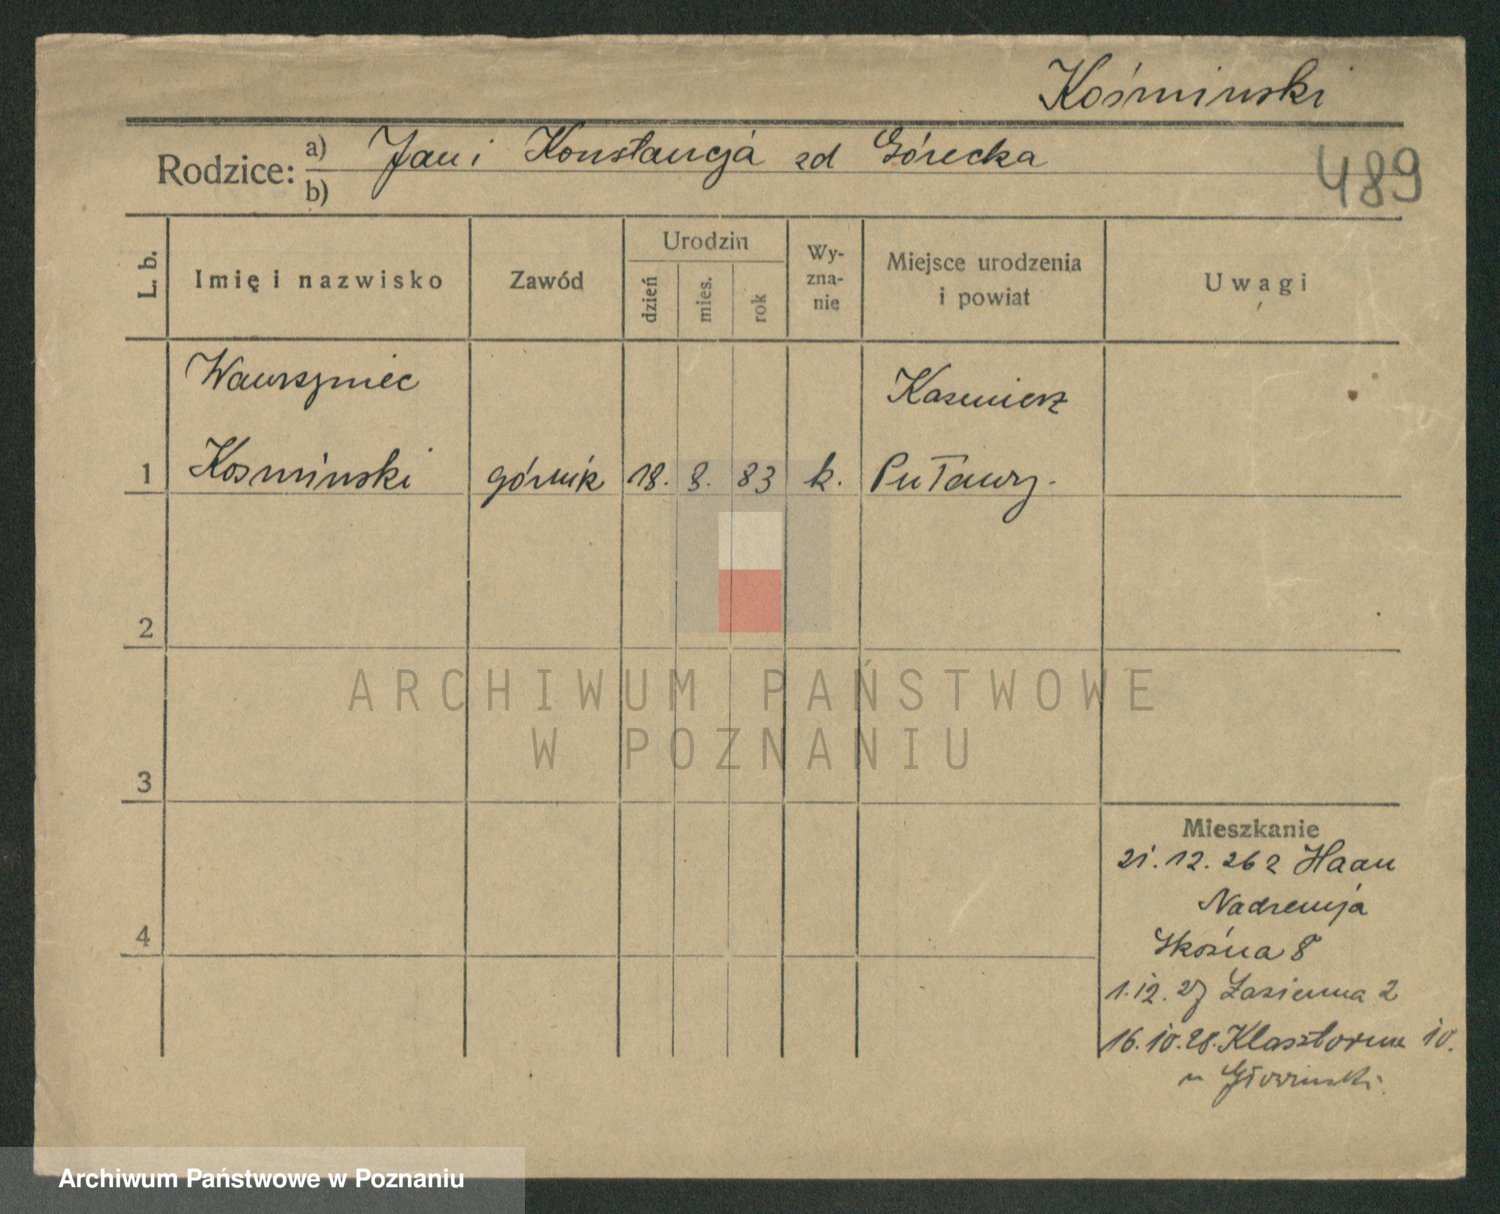 Kośminski
Rodzice: a) Jan i Konstancja zd Górecka
b)
489
L. b.
Imię i nazwisko
Zawód
Urodzin
dzień
mies.
rok
Wy-
zna-
nie
Miejsce urodzenia
i powiat
Uwagi
Wawrzyniec
Kazmierz
1 Kosminski górnik 18. 8. 83 k. Puławy.
2
ARCHIWUM PAŃSTWOWE
W POZNANIU
3
Mieszkanie
21.12.26 z Haan
Nadrenja
4
Skośna 8
1.12.27 Łazienna 2
16.10.28. Klasztorna 10.
u
Archiwum Państwowe w Poznaniu